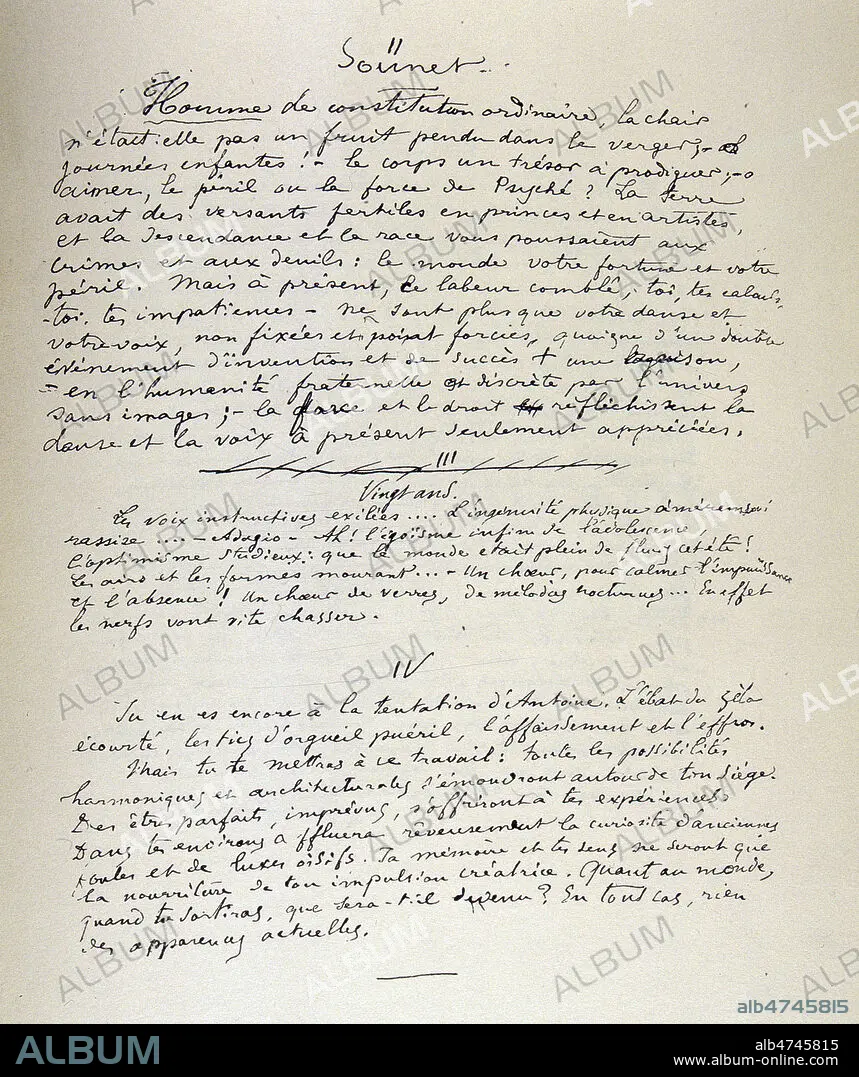 II
Sonnet
Homme de constitution ordinaire, la chair
n'était-elle pas un fruit pendu dans le verger; - ô
journées enfantes! - le corps un trésor à prodiguer; - ô
aimer, le péril ou la force de Psyché? La terre
avait des versants fertiles en princes et en artistes,
et la descendance et la race vous poussaient aux
crimes et aux deuils: le monde votre fortune et votre
péril. Mais à présent, ce labeur comblé; toi, tes calculs,
- toi, tes impatiences - ne sont plus que votre danse et
votre voix, non fixées et point forcées, quoique d'un double
événement d'invention et de succès + une raison,
- en l'humanité fraternelle et discrète par l'univers
sans images; - la force et le droit réfléchissent la
danse et la voix à présent seulement appréciées.
III
Vingt ans.
Les voix instructives exilées .... L'ingénuité physique amèrement
rassise .... - Adagio - Ah! l'égoïsme infini de l'adolescence
l'optimisme studieux: que le monde était plein de fleurs cet été!
Les airs et les formes mourant ... - Un chœur, pour calmer l'impuissance
et l'absence! Un chœur de verres, de mélodies nocturnes ... En effet
les nerfs vont vite chasser.
IV
Tu en es encore à la tentation d'Antoine. L'ébat du zèle
écourté, les tics d'orgueil puéril, l'affaissement et l'effroi.
Mais tu te mettras à ce travail: toutes les possibilités
harmoniques et architecturales s'émouvront autour de ton siège.
Des êtres parfaits, imprévus, s'offriront à tes expériences.
Dans tes environs affluera rêveusement la curiosité d'anciennes
foules et de luxes oisifs. Ta mémoire et tes sens ne seront que
la nourriture de ton impulsion créatrice. Quant au monde,
quand tu sortiras, que sera-t-il devenu? En tout cas, rien
des apparences actuelles.
alb4745815
ALBUM
alb4745815
www.album-online.com